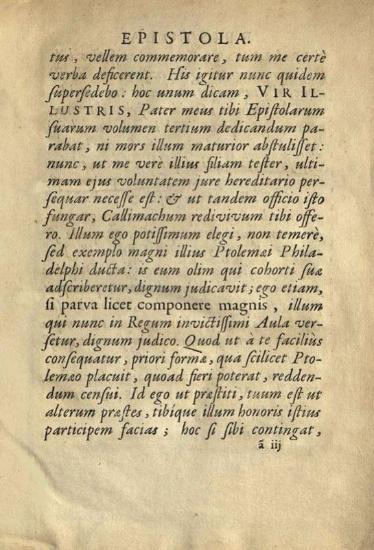 EPISTOLA.
tus, vellem commemorare, tum me certè
verba deficerent. His igitur nunc quidem
ſuperſedebo: hoc unum dicam, VIR IL-
LUSTRIS, Pater meus tibi Epiſtolarum
ſuarum volumen tertium dedicandum pa-
rabat, ni mors illum maturior abſtuliſſet:
nunc, ut me verè illius filiam teſter, ulti-
mam ejus voluntatem jure hereditario per-
ſequar neceſſe eſt: & ut tandem officio iſto
fungar, Callimachum redivivum tibi offe-
ro. Illum ego potiſſimum elegi, non temerè,
ſed exemplo magni illius Ptolemæi Phila-
delphi ducta: is eum olim qui cohorti ſuæ
adſcriberetur, dignum judicavit; ego etiam,
ſi parva licet componere magnis, illum
qui nunc in Regum invictiſſimi Aula ver-
ſetur, dignum judico. Quod ut à te faciliùs
conſequatur, priori formæ, quæ ſcilicet Pto-
lemæo placuit, quoad fieri poterat, redden-
dum cenſui. Id ego ut præſtiti, tuum eſt ut
alterum præſtes, tibíque illum honoris iſtius
participem facias; hoc ſi ſibi contingat,
ã iij